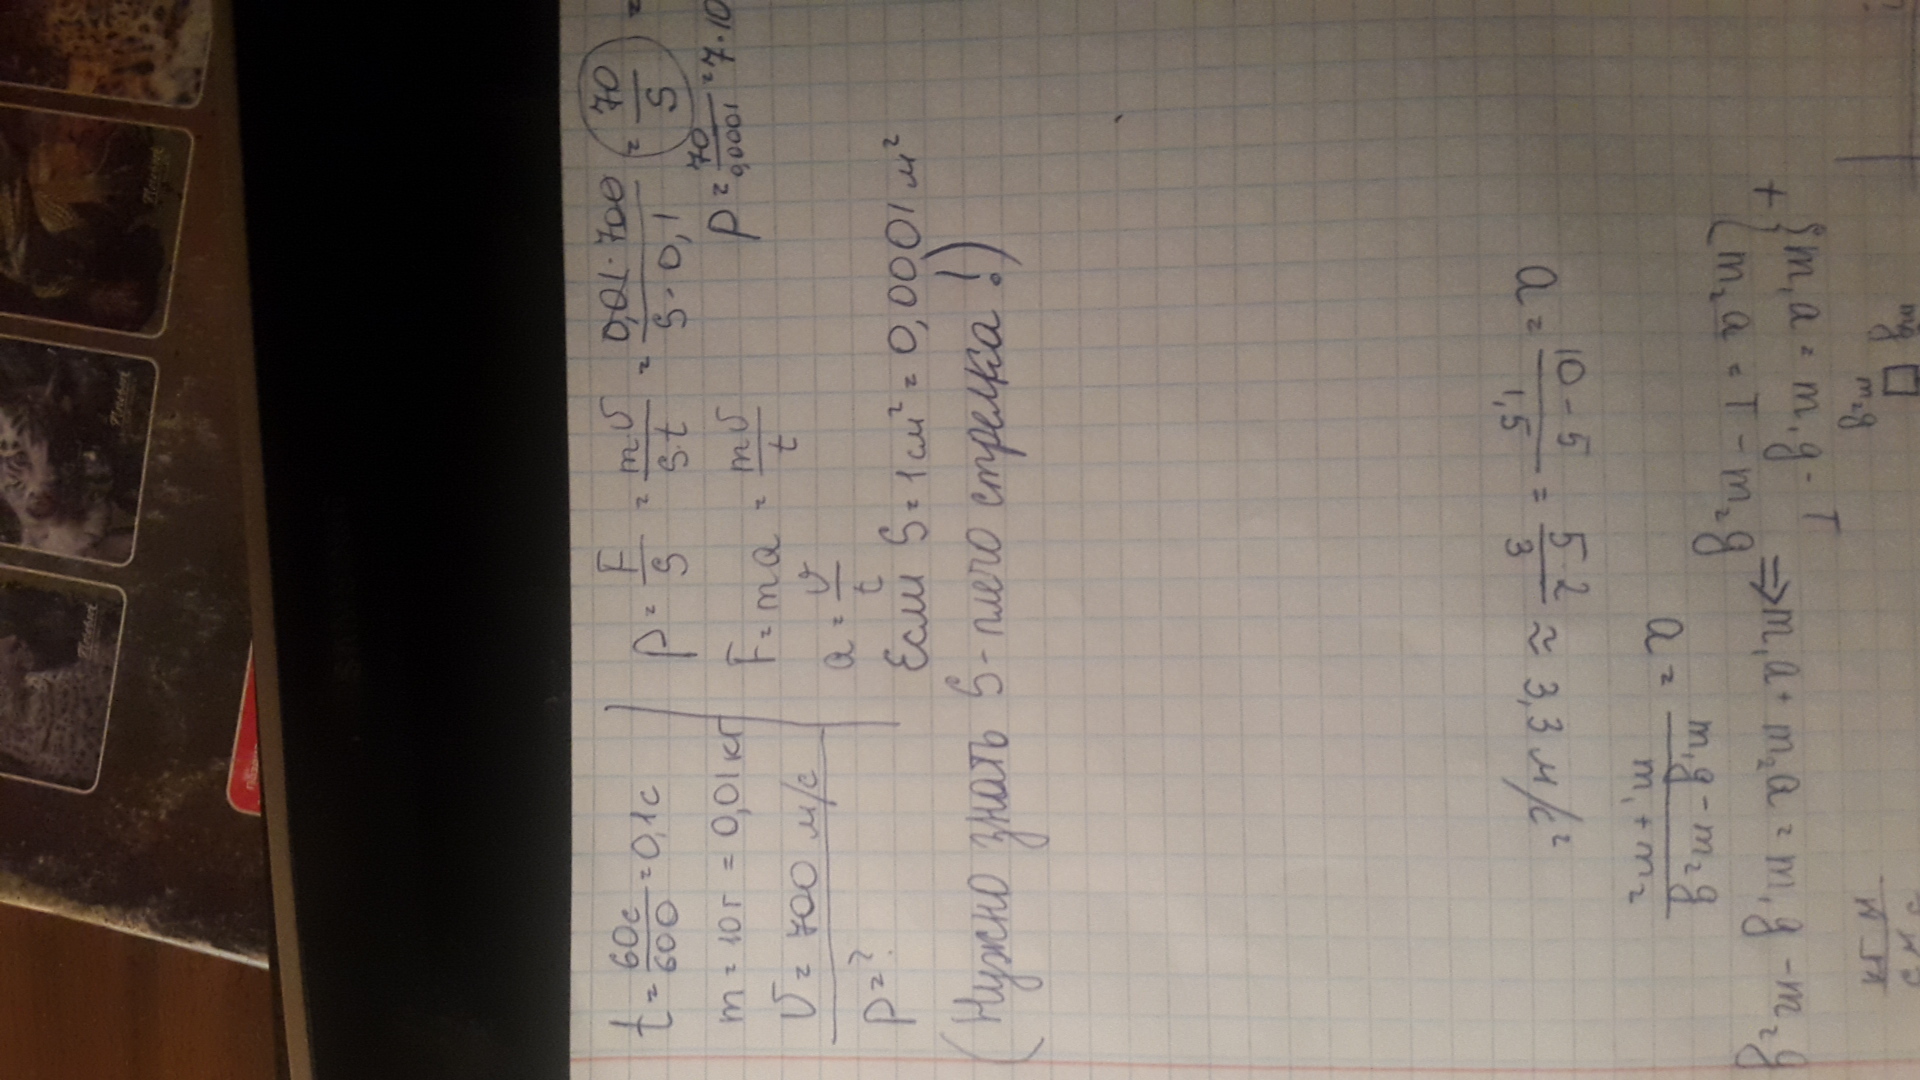 t = 60с/600 = 0,1с
m = 10г = 0,01кг
V = 700 м/с
P = ?
P = F/S = mV/S·t = 0,01·700/S·0,1 = 70/S =
F = ma = mV/t
P = 70/0,0001 = 7·10
a = V/t
Если S = 1см² = 0,0001 м²
(Нужно знать S - плечо стрелка!)
m₂g
mg
+
{m₁a = m₁g - T
{m₂a = T - m₂g
⇒ m₁a + m₂a = m₁g - m₂g
a = m₁g - m₂g/m₁ + m₂
a = 10 - 5/1,5 = 5·2/3 ≈ 3,3 м/с²